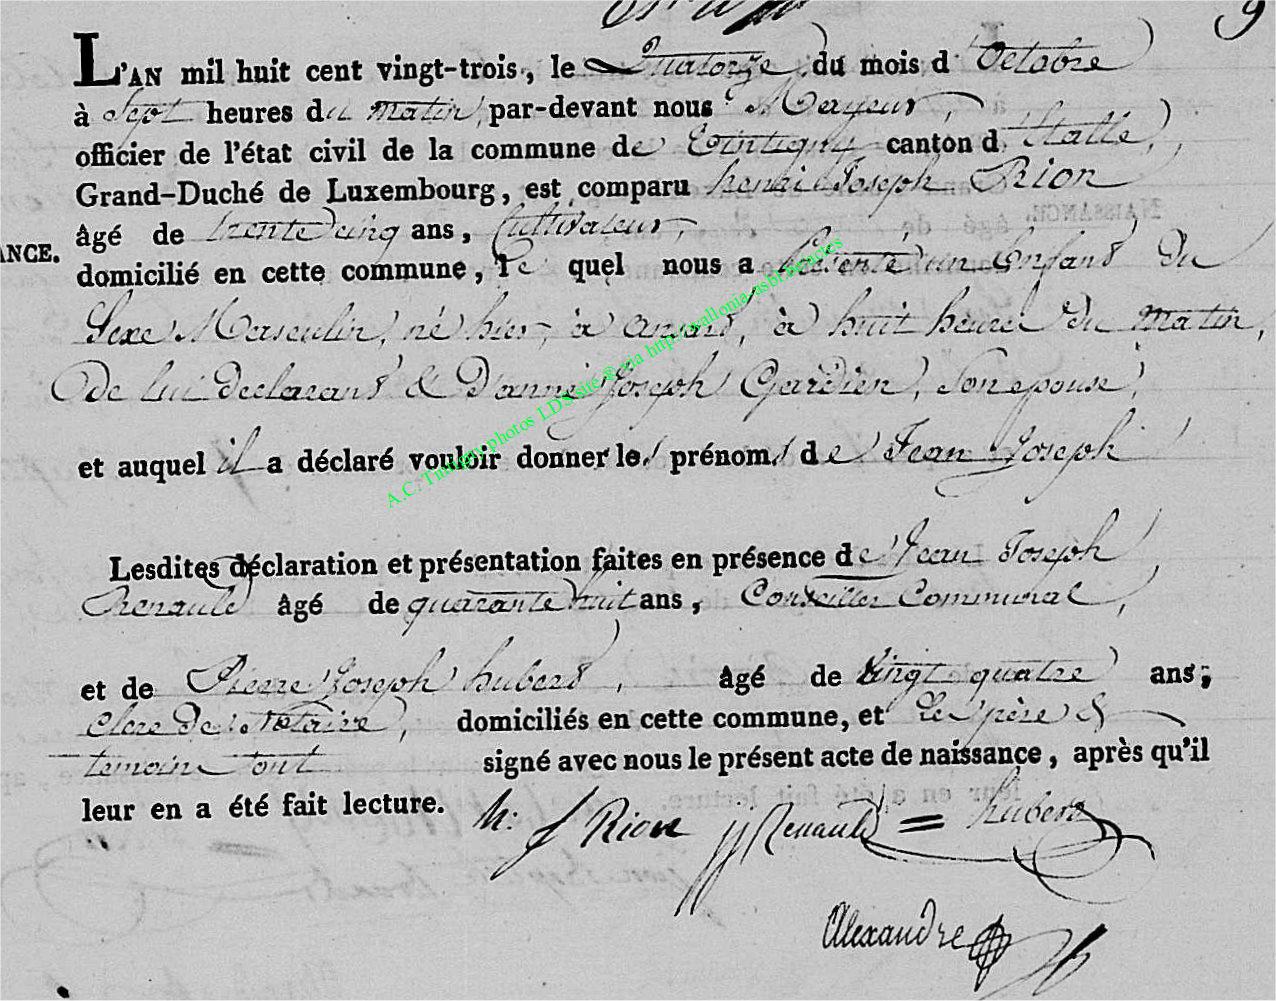 9
L'AN mil huit cent vingt-trois, le Quatorze du mois d'Octobre
à Sept heures du matin, par-devant nous Mayeur,
officier de l'état civil de la commune de Tintigny canton d'Etalle,
Grand-Duché de Luxembourg, est comparu henri Joseph Rion
âgé de trente cinq ans, Cultivateur,
ANCE.
domicilié en cette commune, le quel nous a présenté un Enfant Du
Sexe Masculin, né hier, à ansart, à huit heure du matin,
De lui Declarant & D'anne Joseph Gardien, Son epouse,
et auquel il a déclaré vouloir donner les prénoms de Jean Joseph
Lesdites déclaration et présentation faites en présence de Jean Joseph
Renauld âgé de quarante huit ans, Conseiller Communal,
et de Pierre Joseph hubert, âgé de Vingt quatre ans;
Clerc De Notaire, domiciliés en cette commune, et Le père &
temoins ont signé avec nous le présent acte de naissance, après qu'il
leur en a été fait lecture. h: J Rion JJ Renauld = hubert
Alexandre
A.C. Tintigny photos LDS site ® via http://wallonia-asbl.be/actes